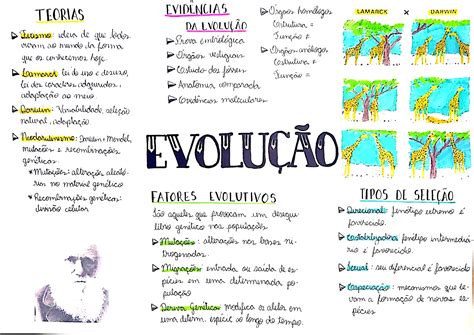 TEORIAS
Fixismo: ideia de que todos
vieram ao mundo da forma
que os conhecemos hoje.
Lamarck: lei do uso e desuso,
lei dos caracteres adquiridos,
adaptação ao meio
Darwin: Variabilidade, seleção
natural, adaptação
Neodarwinismo: Darwin + Mendel,
mutações e recombinações
genéticas
Mutações: alterações aleató-
rias no material genético
Recombinações genéticas:
divisão celular
EVIDÊNCIAS
DA EVOLUÇÃO
Prova embriológica
Órgãos vestigiais
Estudo dos fósseis
Anatomia comparada
Evidências moleculares
Órgãos homólogos
Estrutura =
Função ≠
Órgãos análogos
Estrutura ≠
Função =
LAMARCK x DARWIN
EVOLUÇÃO
FATORES EVOLUTIVOS
São aqueles que provocam um desequi
líbrio genético nas populações.
Mutações: alterações nas bases ni-
trogenadas.
Migrações: entrada ou saída de es-
pécies em uma determinada po-
pulação
Deriva Genética: modifica os alelos em
uma determ. espécie ao longo do tempo.
TIPOS DE SELEÇÃO
Direcional: fenótipo extremo é
favorecido.
Estabilizadora: fenótipo intermediá-
rio é favorecido.
Sexual: seu diferencial é favorecido
Especiação: mecanismos que le-
vam a formação de novas es-
pécies